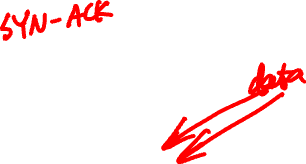 SYN-ACK
data